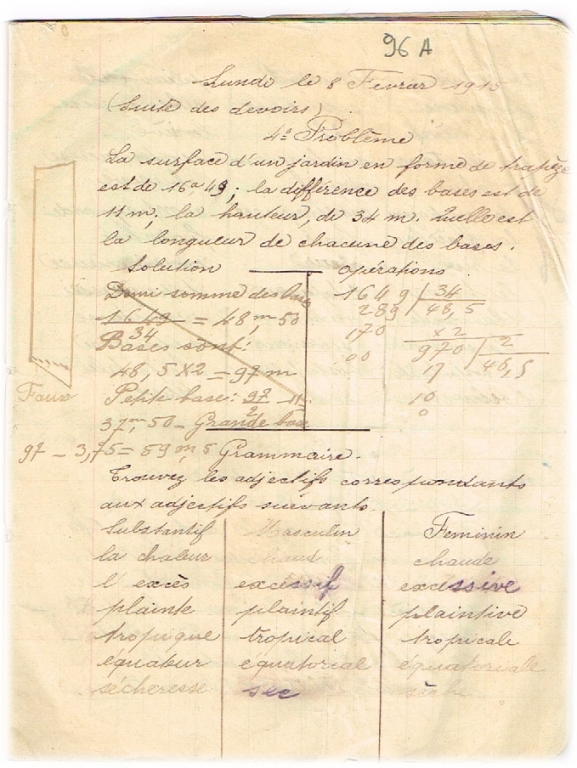 96 A
Lundi le 8 Fevrier 1915
(Suite des devoirs)
4e Problème
La surface d'un jardin en forme de trapèze
est de 16a 49; la différence des bases est de
11 m; la hauteur, de 34 m. Quelle est
la longueur de chacune des bases.
Solution
Demi somme des bases
1649/34 = 48,m 50
Bases sont:
48,5 x 2 = 97 m
Petite base: 97/2 - 11 =
37,m 50 - Grande base
97 - 3,75 = 59 m, 5
Faux
opérations
1649 | 34
289 | 48,5
170 x 2
00 970 | 2
17 | 48,5
10
0
Grammaire.
Trouvez les adjectifs correspondants
aux adjectifs suivants.
Substantif Masculin Feminin
la chaleur chaud chaude
l'excès excessif excessive
plainte plaintif plaintive
tropique tropical tropicale
équateur équatorial équatoriale
sécheresse sec sèche